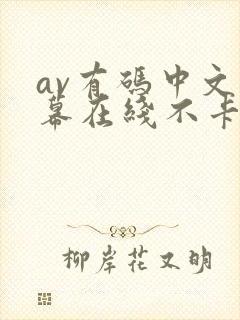 av有码中文
幕在线不卡
柳岸花又明